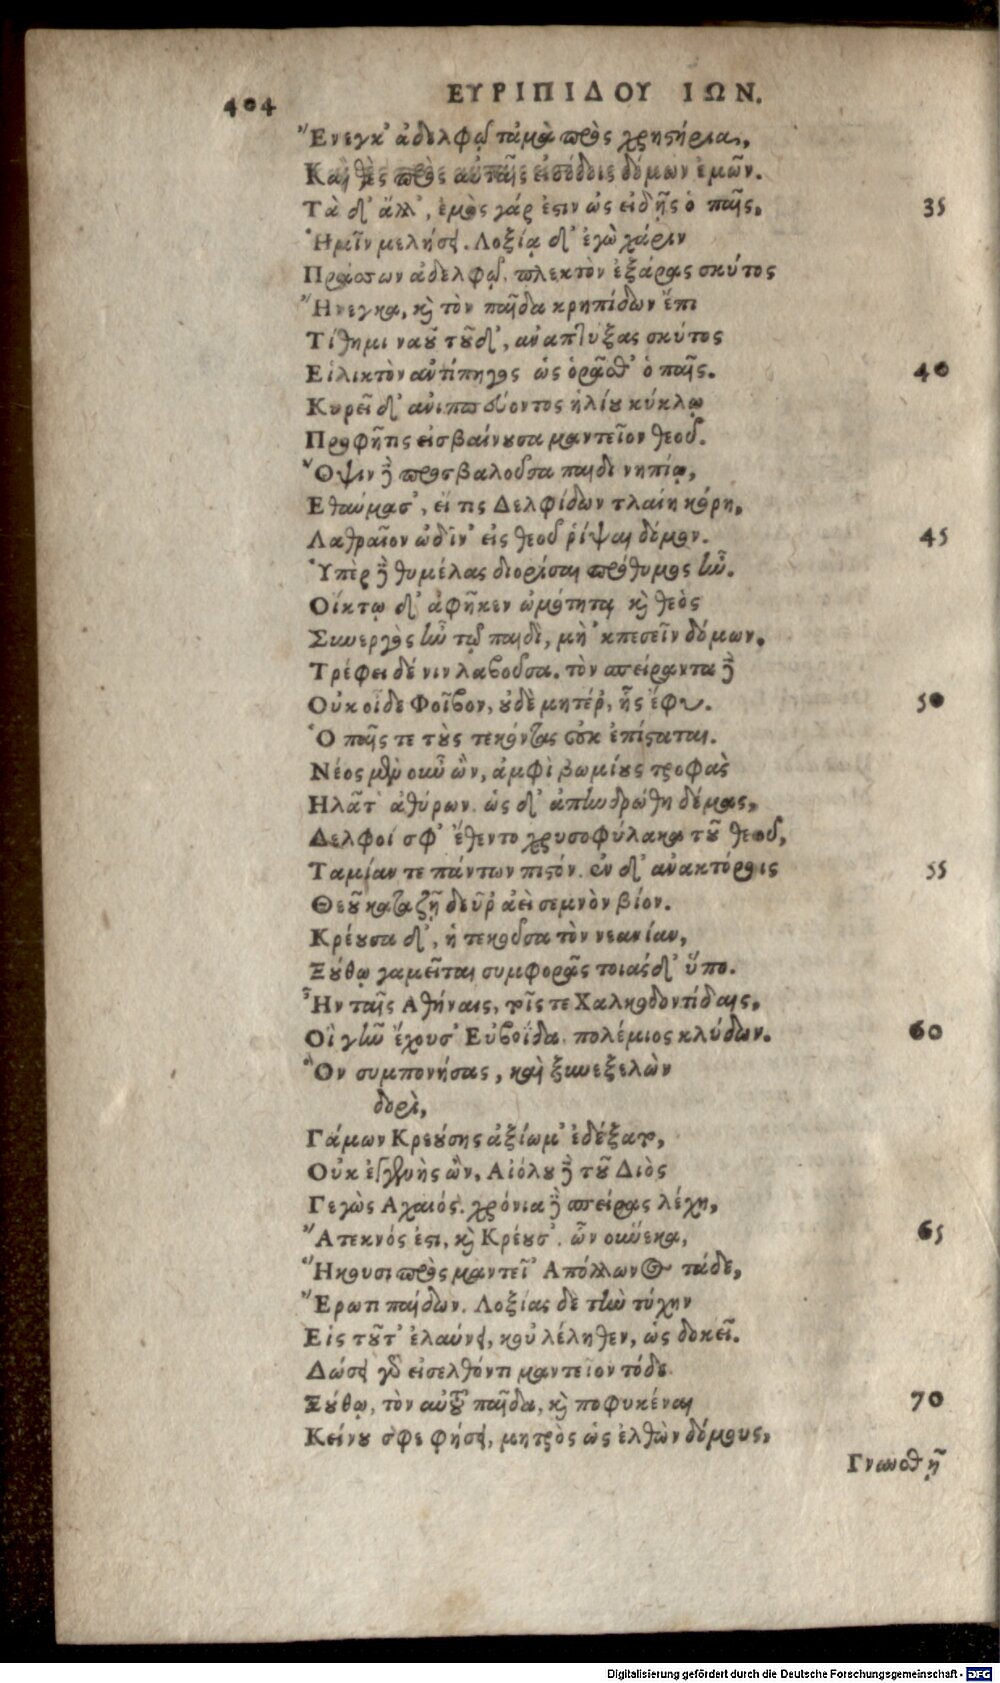 404
ΕΥΡΙΠΙΔΟΥ ΙΩΝ.
Ἔνεγκ' ἀδελφῷ τἀμὰ πρὸς χρηστήρια,
Καὶ θὲς πρὸς αὐταῖς εἰσόδοις δόμων ἐμῶν.
Τὰ δ' ἄλλ', ἐμὸς γάρ ἐστιν ὡς εἰδῇς ὁ παῖς, 35
Ἡμῖν μελήσει. Λοξίᾳ δ' ἐγὼ χάριν
Πράσσων ἀδελφῷ, πλεκτὸν ἐξάρας σκύτος
Ἤνεγκα, καὶ τὸν παῖδα κρηπίδων ἔπι
Τίθημι ναοῦ τοῦδ', ἀναπτύξας σκύτος
Εἱλικτὸν ἀντίπηγος ὡς ὁρᾶθ' ὁ παῖς. 40
Κυρεῖ δ' ἀνιππεύοντος ἡλίου κύκλῳ
Προφῆτις εἰσβαίνουσα μαντεῖον θεοῦ.
Ὄψιν δὲ προσβαλοῦσα παιδὶ νηπίῳ,
Εθαύμασ', εἴ τις Δελφίδων τλαίη κόρη,
Λαθραῖον ὠδῖν' εἰς θεοῦ ῥίψαι δόμον. 45
Ὑπὲρ δὲ θυμέλας διορίσαι πρόθυμος ἦν.
Οἴκτῳ δ' ἀφῆκεν ὠμότητα, καὶ θεὸς
Συνεργὸς ἦν τῷ παιδὶ, μὴ 'κπεσεῖν δόμων.
Τρέφει δέ νιν λαβοῦσα. τὸν σπείραντα δὲ
Οὐκ οἶδε Φοῖβον, οὐδὲ μητέρ', ἧς ἔφυ. 50
Ὁ παῖς τε τοὺς τεκόντας οὐκ ἐπίσταται.
Νέος μὲν οὖν ὢν, ἀμφὶ βωμίους τροφὰς
Ηλᾶτ' ἀθύρων. ὡς δ' ἀπηνδρώθη δέμας,
Δελφοί σφ' ἔθεντο χρυσοφύλακα τοῦ θεοῦ,
Ταμίαν τε πάντων πιστόν. ἐν δ' ἀνακτόροις 55
Θεοῦ καταζῇ δεῦρ' ἀεὶ σεμνὸν βίον.
Κρέουσα δ', ἡ τεκοῦσα τὸν νεανίαν,
Ξούθῳ γαμεῖται συμφορᾶς τοιᾶσδ' ὕπο.
Ἦν ταῖς Αθήναις, τοῖς τε Χαλκοδοντίδαις,
Οἳ γῆν ἔχουσ' Εὐβοΐδα, πολέμιος κλύδων. 60
Ὃν συμπονήσας, καὶ ξυνεξελὼν
δορὶ,
Γάμων Κρεούσης ἀξίωμ' ἐδέξατο,
Οὐκ ἐγγενὴς ὢν, Αἰόλου δὲ τοῦ Διὸς
Γεγὼς Αχαιός. χρόνια δὲ σπείρας λέχη,
Ἄτεκνός ἐστι, καὶ Κρέουσ'. ὧν οὕνεκα, 65
Ἥκουσι πρὸς μαντεῖ' Απόλλωνος τάδε,
Ἔρωτι παίδων. Λοξίας δὲ τὴν τύχην
Εἰς τοῦτ' ἐλαύνει, κοὐ λέληθεν, ὡς δοκεῖ.
Δώσει γὰρ εἰσελθόντι μαντεῖον τόδε
Ξούθῳ, τὸν αὑτοῦ παῖδα, καὶ πεφυκέναι 70
Κείνου σφε φήσει, μητρὸς ὡς ἐλθὼν δόμους,
Γνωσθῇ
Digitalisierung gefördert durch die Deutsche Forschungsgemeinschaft - DFG